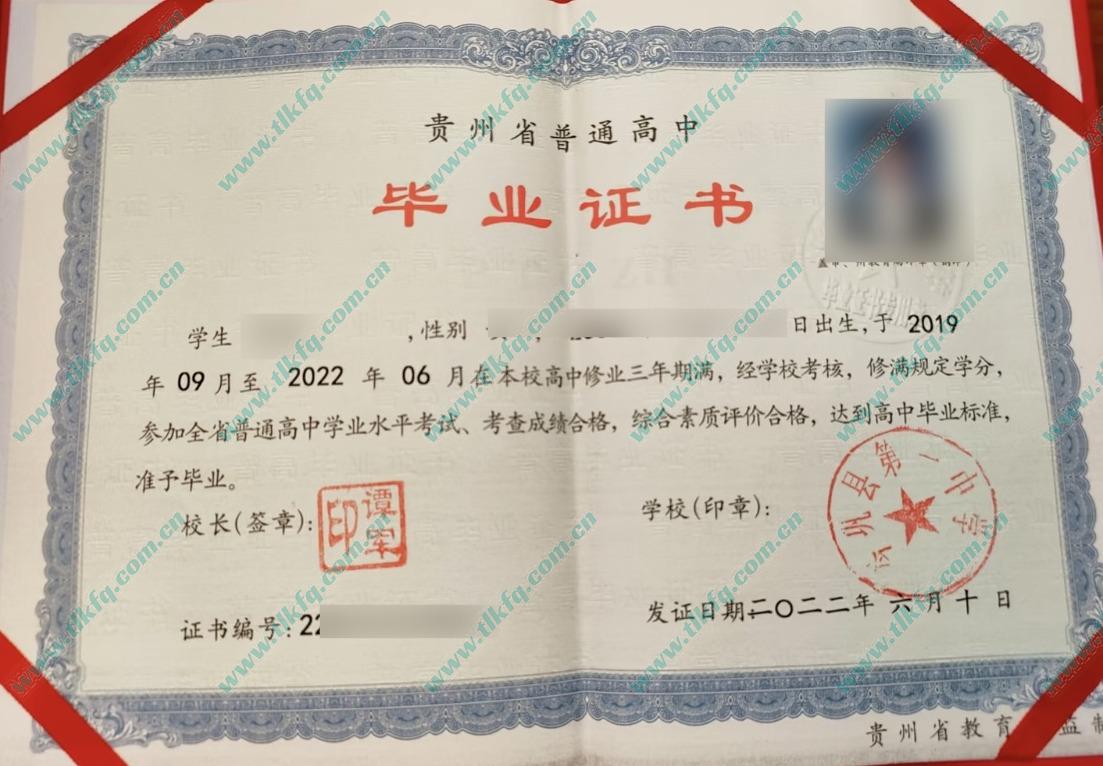 贵州省普通高中
毕业证书
学生 ,性别 日出生,于 2019
年 09 月至 2022 年 06 月在本校高中修业三年期满，经学校考核，修满规定学分，
参加全省普通高中学业水平考试、考查成绩合格，综合素质评价合格，达到高中毕业标准，
准予毕业。
校长(签章):
谭军印
学校(印章):
县第一中学
证书编号:22
发证日期:二〇二二年 六月十日
贵州省教育 监制
www.tlkfq.com.cn